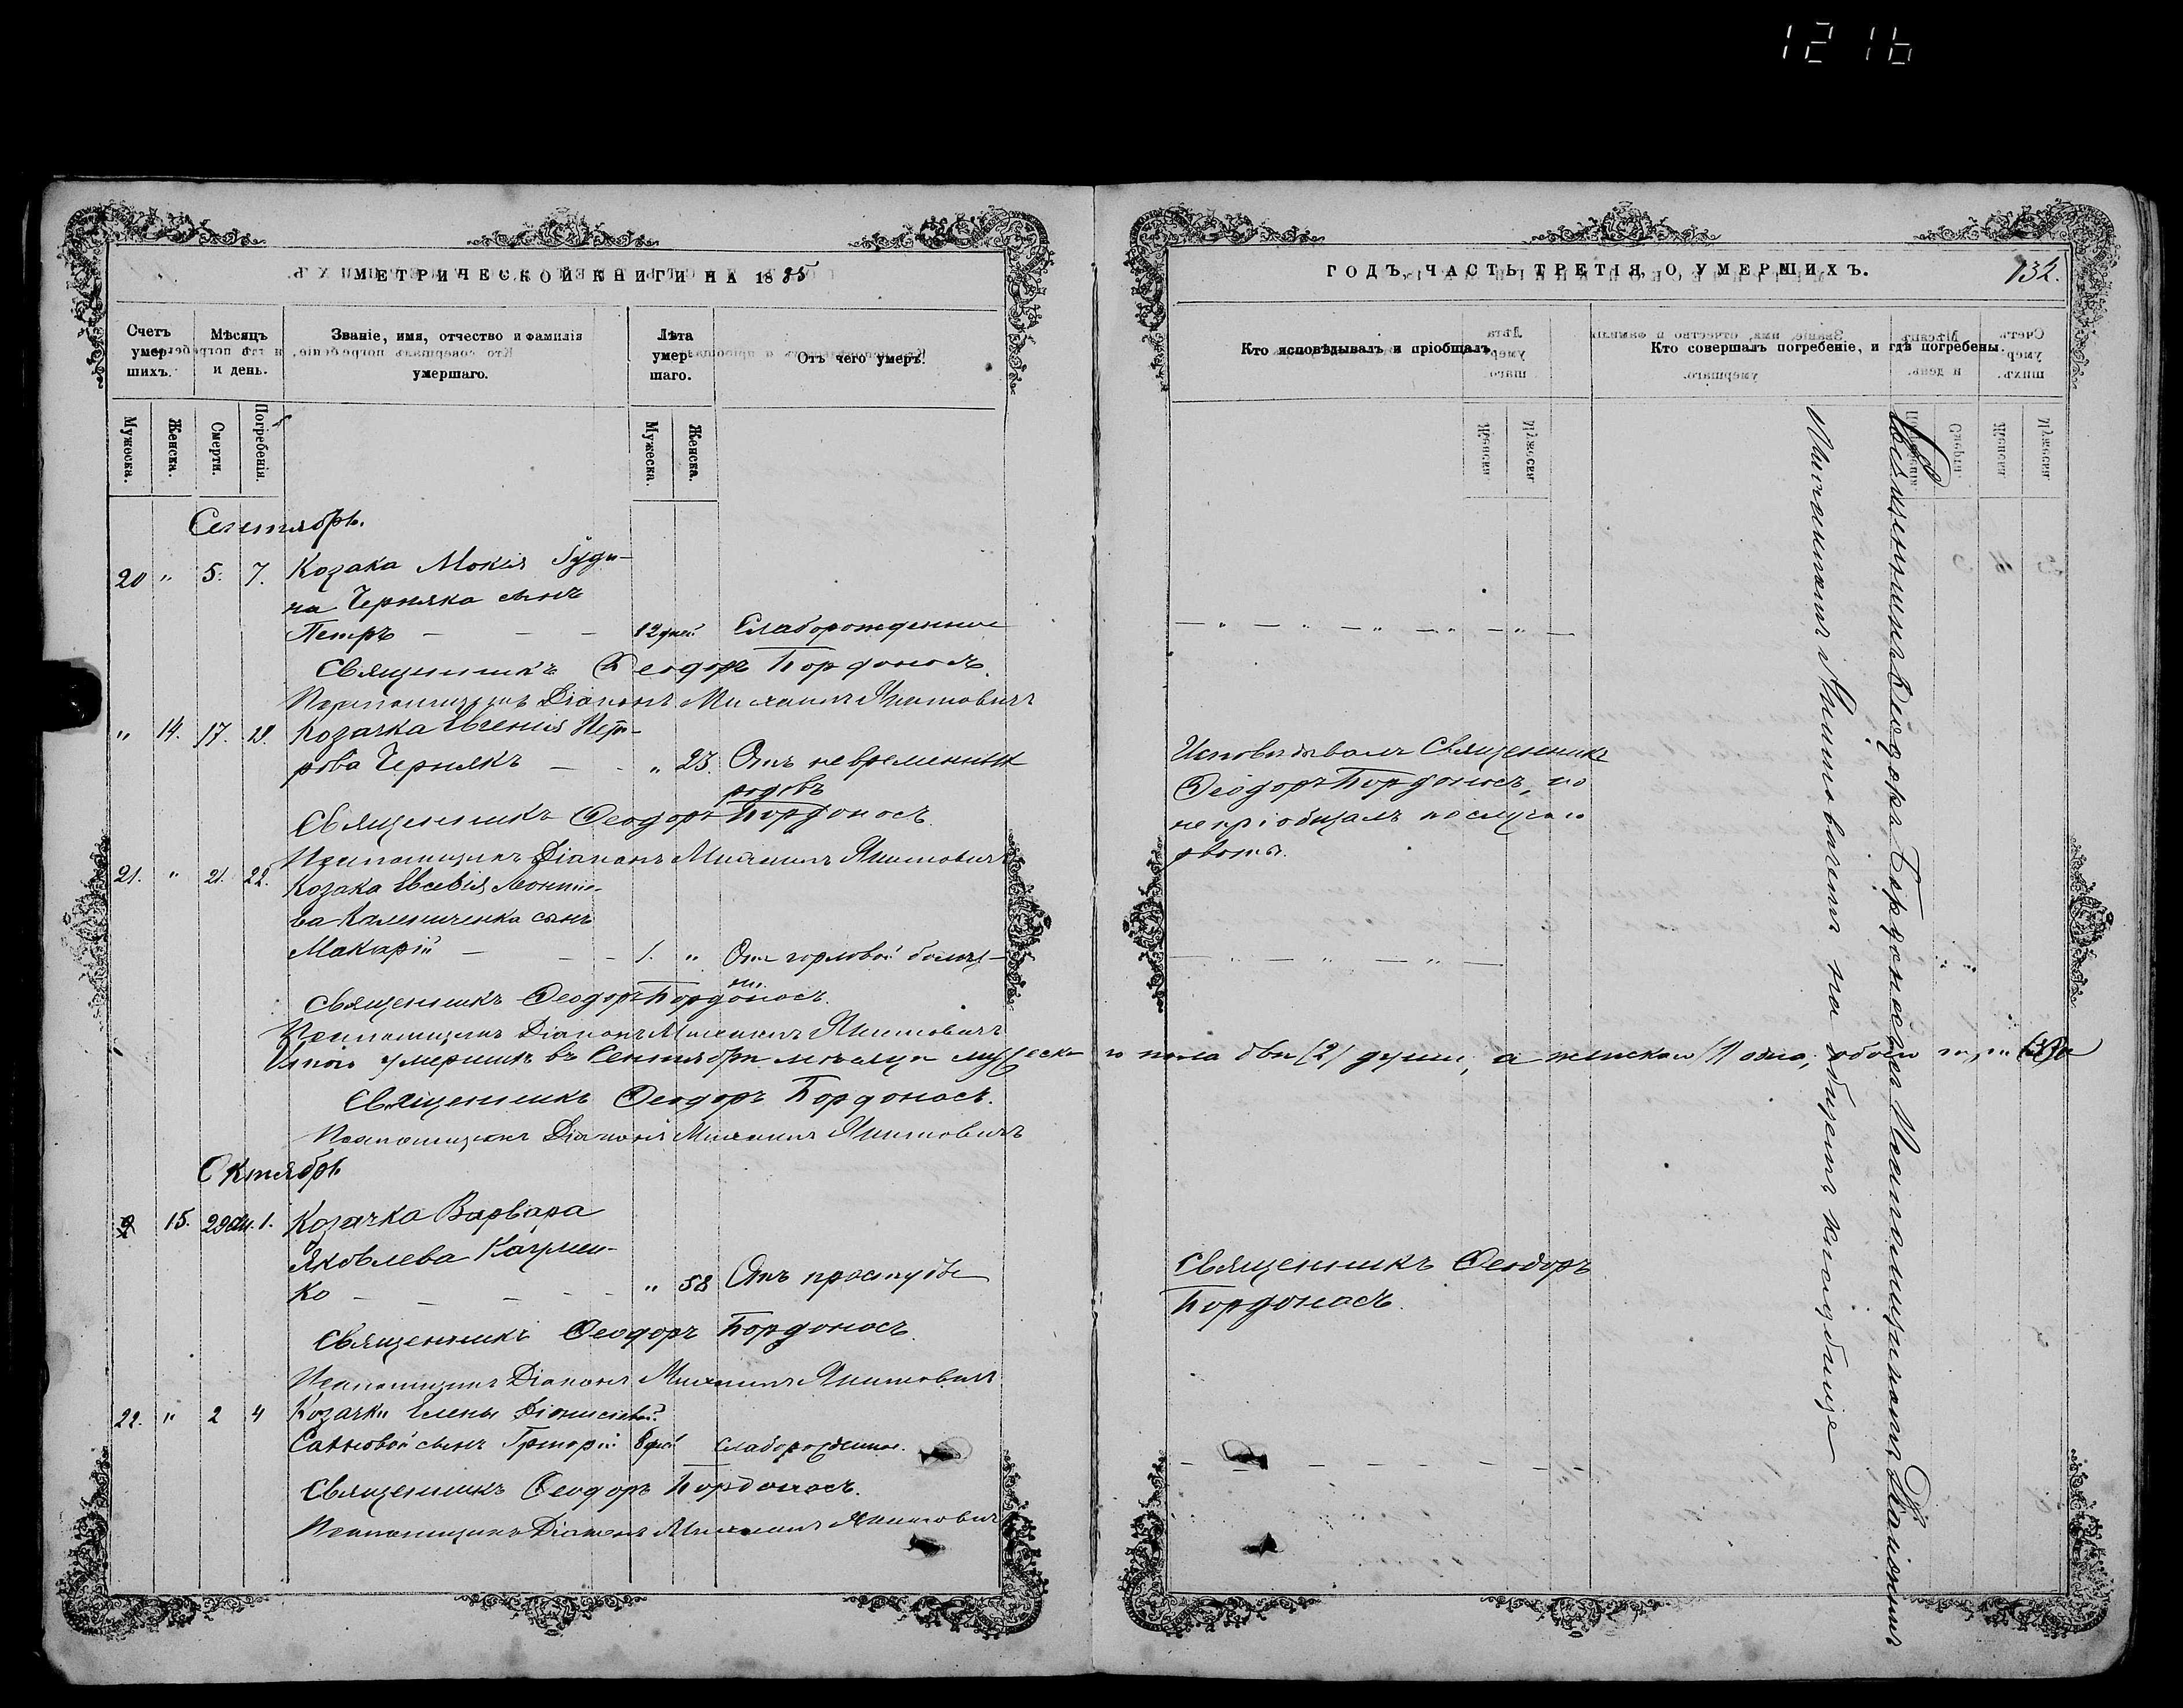 1216
МЕТРИЧЕСКОЙ КНИГИ НА 1885
Счетъ умер-шихъ.
Мѣсяцъ и день.
Званіе, имя, отчество и фамилія умершаго.
Лѣта умер-шаго.
Отъ чего умеръ.
Мужеска.
Женска.
Смерти.
Погребенія.
Мужеска.
Женска.
Сентябрь.
20 " 5. 7. Козака Мокія
на Черняка сынъ
Петръ — — — 12 дней Слаборожденное
Священникъ Ѳеодоръ Бордоносъ.
Діаконъ Михаилъ
" 14. 17. Козачка Евгенія Пет-
рова Чернякъ — " 23. Отъ невременныхъ
родовъ
Священникъ Ѳеодоръ Бордоносъ
Діаконъ Михаилъ
21. " 21. 22. Козака Евсевія Леонтіе-
ва Калениченка сынъ
Макарій — — — 1. " Отъ горловой болѣз-
ни.
Священникъ Ѳеодоръ Бордоносъ.
Діаконъ Михаилъ
Итого умершихъ въ Сентябрѣ мѣсяцѣ мужеска-го пола двѣ (2) души, а женскаго (1) одна, обоего
Священникъ Ѳеодоръ Бордоносъ.
Діаконъ Михаилъ
Октябрь
15. 29 1. Козачка Варвара
Яковлева
ко — — — — " 58 Отъ простуды
Священникъ Ѳеодоръ Бордоносъ.
Діаконъ Михаилъ
22. " 2 4 Козачки Елены Діонисіевой
сынъ Григорій 8 дней Слаборожденное.
Священникъ Ѳеодоръ Бордоносъ.
Діаконъ Михаилъ
ГОДЪ, ЧАСТЬ ТРЕТІЯ, О УМЕРШИХЪ.
132.
Кто исповѣдывалъ и пріобщалъ.
Кто совершалъ погребеніе, и гдѣ погребены.
Исповѣдывалъ Священникъ
Ѳеодоръ Бордоносъ, но
не пріобщалъ по случаю
рвоты.
Священникъ Ѳеодоръ
Бордоносъ.
Священникъ Ѳеодоръ Бордоносъ Діакономъ
Михаиломъ на общемъ кладбище